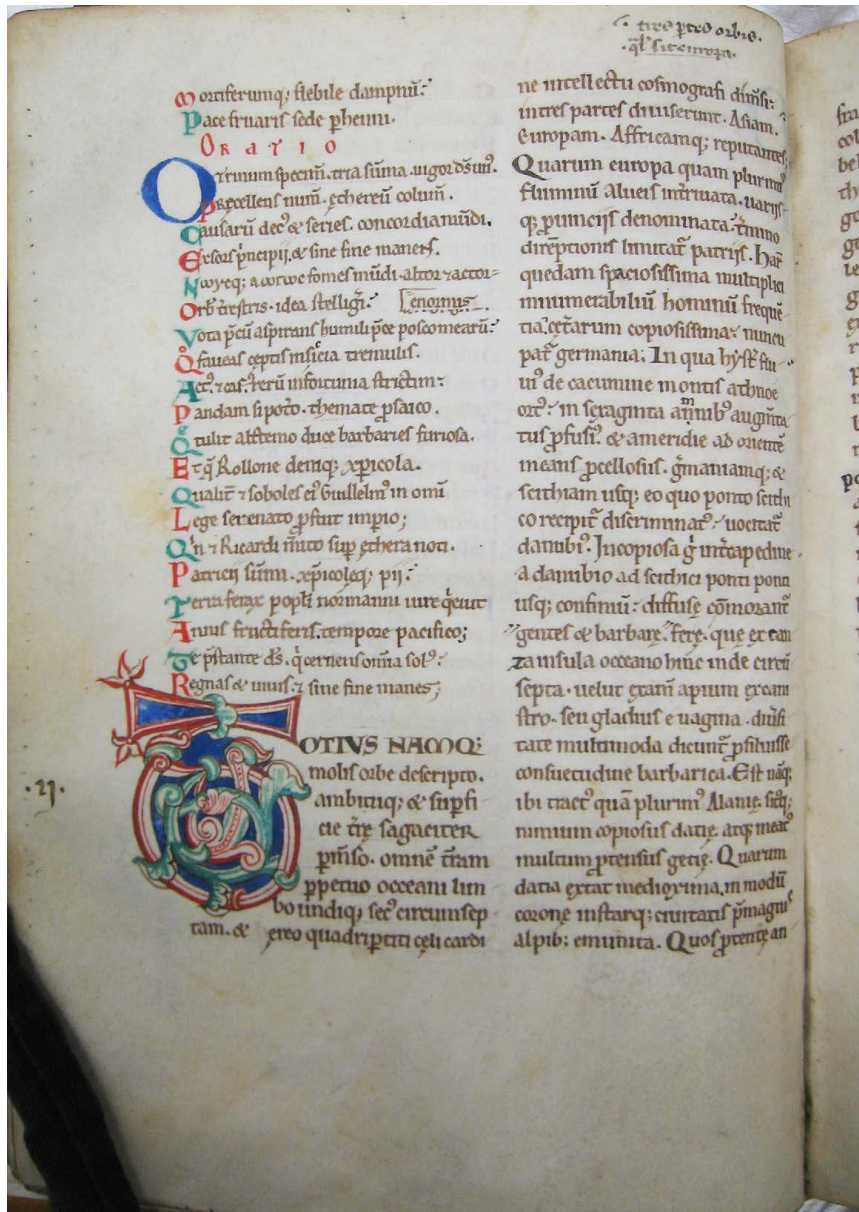 tres partes orbis.
qal' sit europa.
Mortiferumq; flebile dampnū.
Pace fruaris sede phenni.
Oratio
O trinum specim̄. tria sūma. uigor d̄s un'.
Pręcellens num̄. ęthereū colum̄.
Causarū dec' & series. concordia mūdi.
Ersors principii. & sine fine manens.
fomes mūdi. altor & actor
Orb' terrestris. idea stelligeri. enormis
Vota p̄cū aspirans humili p̄ce posco mearū.
Q faueas ceptis inscicia tremulis.
Act' & cas' rerū infortunia strictim.
Pandam si potero. themate prosaico.
Q tulit duce barbaries furiosa.
Et q̄ Rollone deniq; xp̄icola.
Qualit̄ & soboles ei' Guillelm' in omī
Lege serenato p̄fuit imp̄io;
Qn & Ricardi m̄ito sup ęthera noti.
Patricii sūmi. xp̄icoleq; pii.
Terra ferax popli normanni iure qeiut
Annis fructiferis. tempore pacifico;
Te p̄stante d̄s. q cernens om̄ia sol'.
Regnas & uiuis. & sine fine manes;
TOTIVS NAMQ;
molis orbe descripto.
ambituq; & supfi
cie t̄rę sagaciter
p̄m̄so. omnē t̄ram
ppetuo occeani lim
bo undiq; sec' circumsep
tam. & ęreo quadripartiti cęli cardi
.21.
ne intellectu cosmografi dim̄si.
in tres partes diuiserunt. Asiam.
Europam. Affricamq; reputantes.
Quarum europa quam plurim'
fluminū alueis int̄riuata. uariis
q; puinciis denominata. t̄mino
direptionis limitat̄ patriis. Har̄
quedam spaciosissima multiplici
innumerabiliū hominū frequē
tia. cęt̄arum copiosissima. nuncu
pat̄ germania; In qua hyst̄ flu
ui' de cacumine montis athnoe
ort'. in sexaginta amnib' augm̄ta
tus pfusi'. & a meridie ad orientē
means pcellosus. ḡmaniamq; &
scithiam usq; eo quo ponto scithi
co recipit̄ discriminat'. uocitat̄
danubi'. In copiosa ḡ int̄capedine
a danubio ad scithici ponti ponti
usq; confiniū. diffusę cōmorant̄
gentes & barbarę. ferę. quę ex can
za insula occeano hinc inde circū
septa. uelut exam̄ apium ex cani
stro. seu gladius e uagina. diūsi
tate multimoda dicunt̄ psiluisse
consuetudine barbarica. Est nāq;
ibi tract' quā plurim' Alanię. sitq;
nimium copiosus datię. atq; meat'
multum ptensus getię. Quarum
datia extat medioxima. in modū
coronę instarq; ciuitatis p̄magnę
alpib; emunita. Quos ptentę an